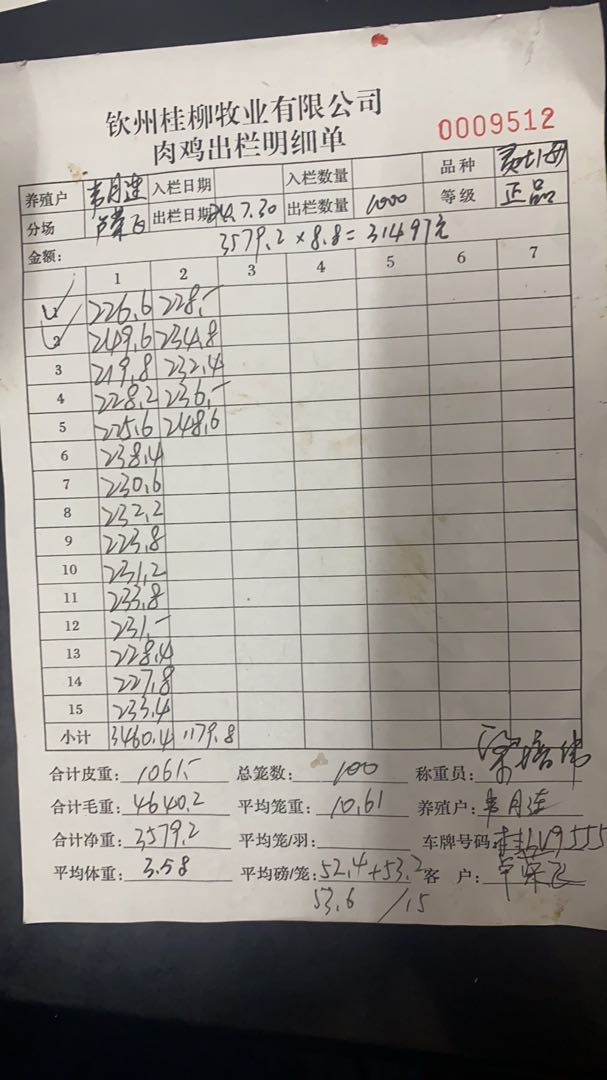 钦州桂柳牧业有限公司
肉鸡出栏明细单
0009512
养殖户 韦月连 入栏日期 入栏数量 品种
分场 出栏日期 24.7.30 出栏数量 1000 等级 正品
金额: 3579.2×8.8=31497元
1 2 3 4 5 6 7
1 226.6 228.-
2 249.6 234.8
3 219.8 232.4
4 228.2 236.-
5 225.6 248.6
6 238.4
7 230.6
8 232.2
9 223.8
10 231.2
11 233.8
12 231.-
13 228.4
14 227.8
15 233.4
小计 3460.4 1179.8
合计皮重: 1061.- 总笼数: 100 称重员:
合计毛重: 4640.2 平均笼重: 10.61 养殖户: 韦月连
合计净重: 3579.2 平均笼/羽: 车牌号码:
平均体重: 3.58 平均磅/笼: 52.4+53.2 客 户:
53.6 /15